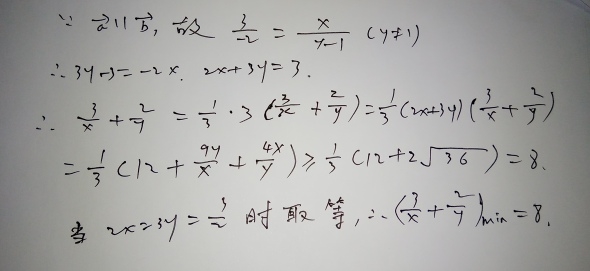 ∵ a⃗ // b⃗, 故 3/-2 = x/(y-1) (y≠1)
∴ 3y-3=-2x. 2x+3y=3.
∴ 3/x + 2/y = 1/3 · 3 (3/x + 2/y) = 1/3 (2x+3y) (3/x + 2/y)
= 1/3 (12 + 9y/x + 4x/y) ≥ 1/3 (12+2√36) = 8.
当 2x=3y=3/2 时取等, ∴ (3/x + 2/y)min = 8.